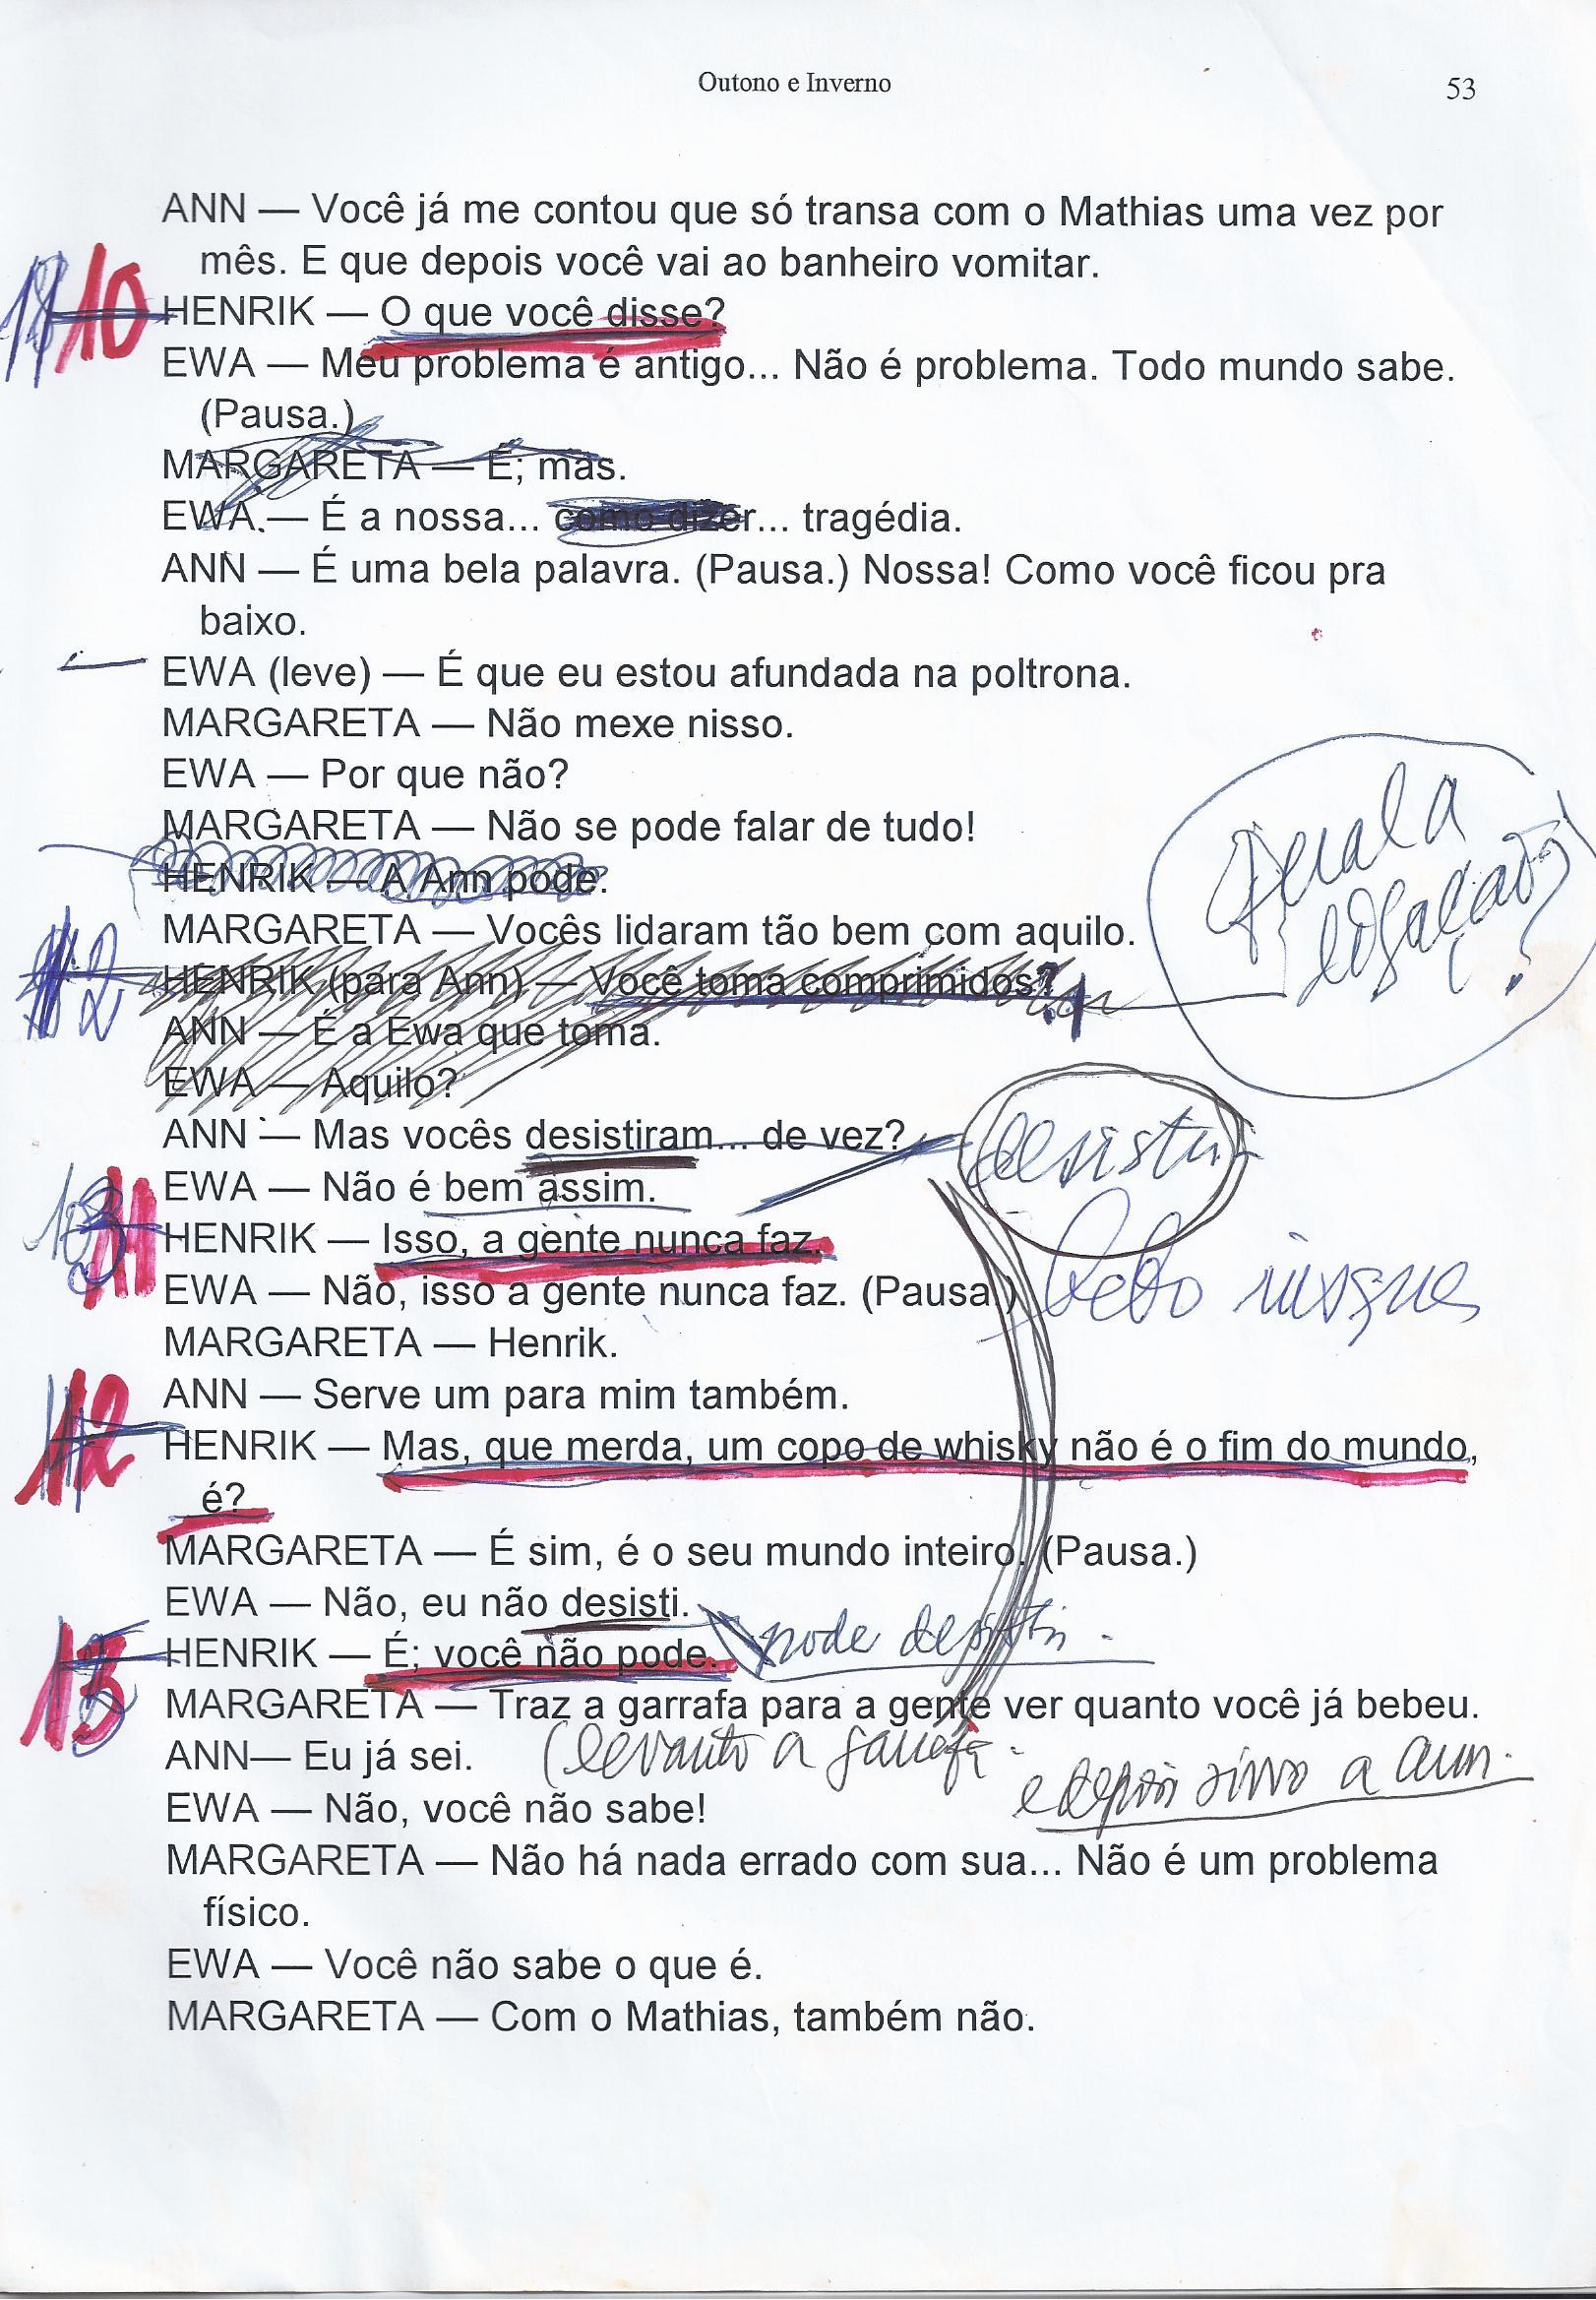 Outono e Inverno
53
ANN — Você já me contou que só transa com o Mathias uma vez por
mês. E que depois você vai ao banheiro vomitar.
10 HENRIK — O que você disse?
EWA — Meu problema é antigo... Não é problema. Todo mundo sabe.
(Pausa.)
MARGARETA — É; mas.
EWA.— É a nossa... como dizer... tragédia.
ANN — É uma bela palavra. (Pausa.) Nossa! Como você ficou pra
baixo.
EWA (leve) — É que eu estou afundada na poltrona.
MARGARETA — Não mexe nisso.
EWA — Por que não?
MARGARETA — Não se pode falar de tudo!
HENRIK — A Ann pode.
MARGARETA — Vocês lidaram tão bem com aquilo.
HENRIK (para Ann) — Você toma comprimidos?
Qual a
ligação?
ANN — É a Ewa que toma.
EWA — Aquilo?
ANN — Mas vocês desistiram... de vez?
desistir
EWA — Não é bem assim.
11 HENRIK — Isso, a gente nunca faz.
EWA — Não, isso a gente nunca faz. (Pausa.)
Bebo
MARGARETA — Henrik.
ANN — Serve um para mim também.
12 HENRIK — Mas, que merda, um copo de whisky não é o fim do mundo,
é?
MARGARETA — É sim, é o seu mundo inteiro. (Pausa.)
EWA — Não, eu não desisti.
13 HENRIK — É; você não pode. pode desistir.
MARGARETA — Traz a garrafa para a gente ver quanto você já bebeu.
ANN— Eu já sei. (levanto a garrafa.
e depois sirvo a Ann.
EWA — Não, você não sabe!
MARGARETA — Não há nada errado com sua... Não é um problema
físico.
EWA — Você não sabe o que é.
MARGARETA — Com o Mathias, também não.